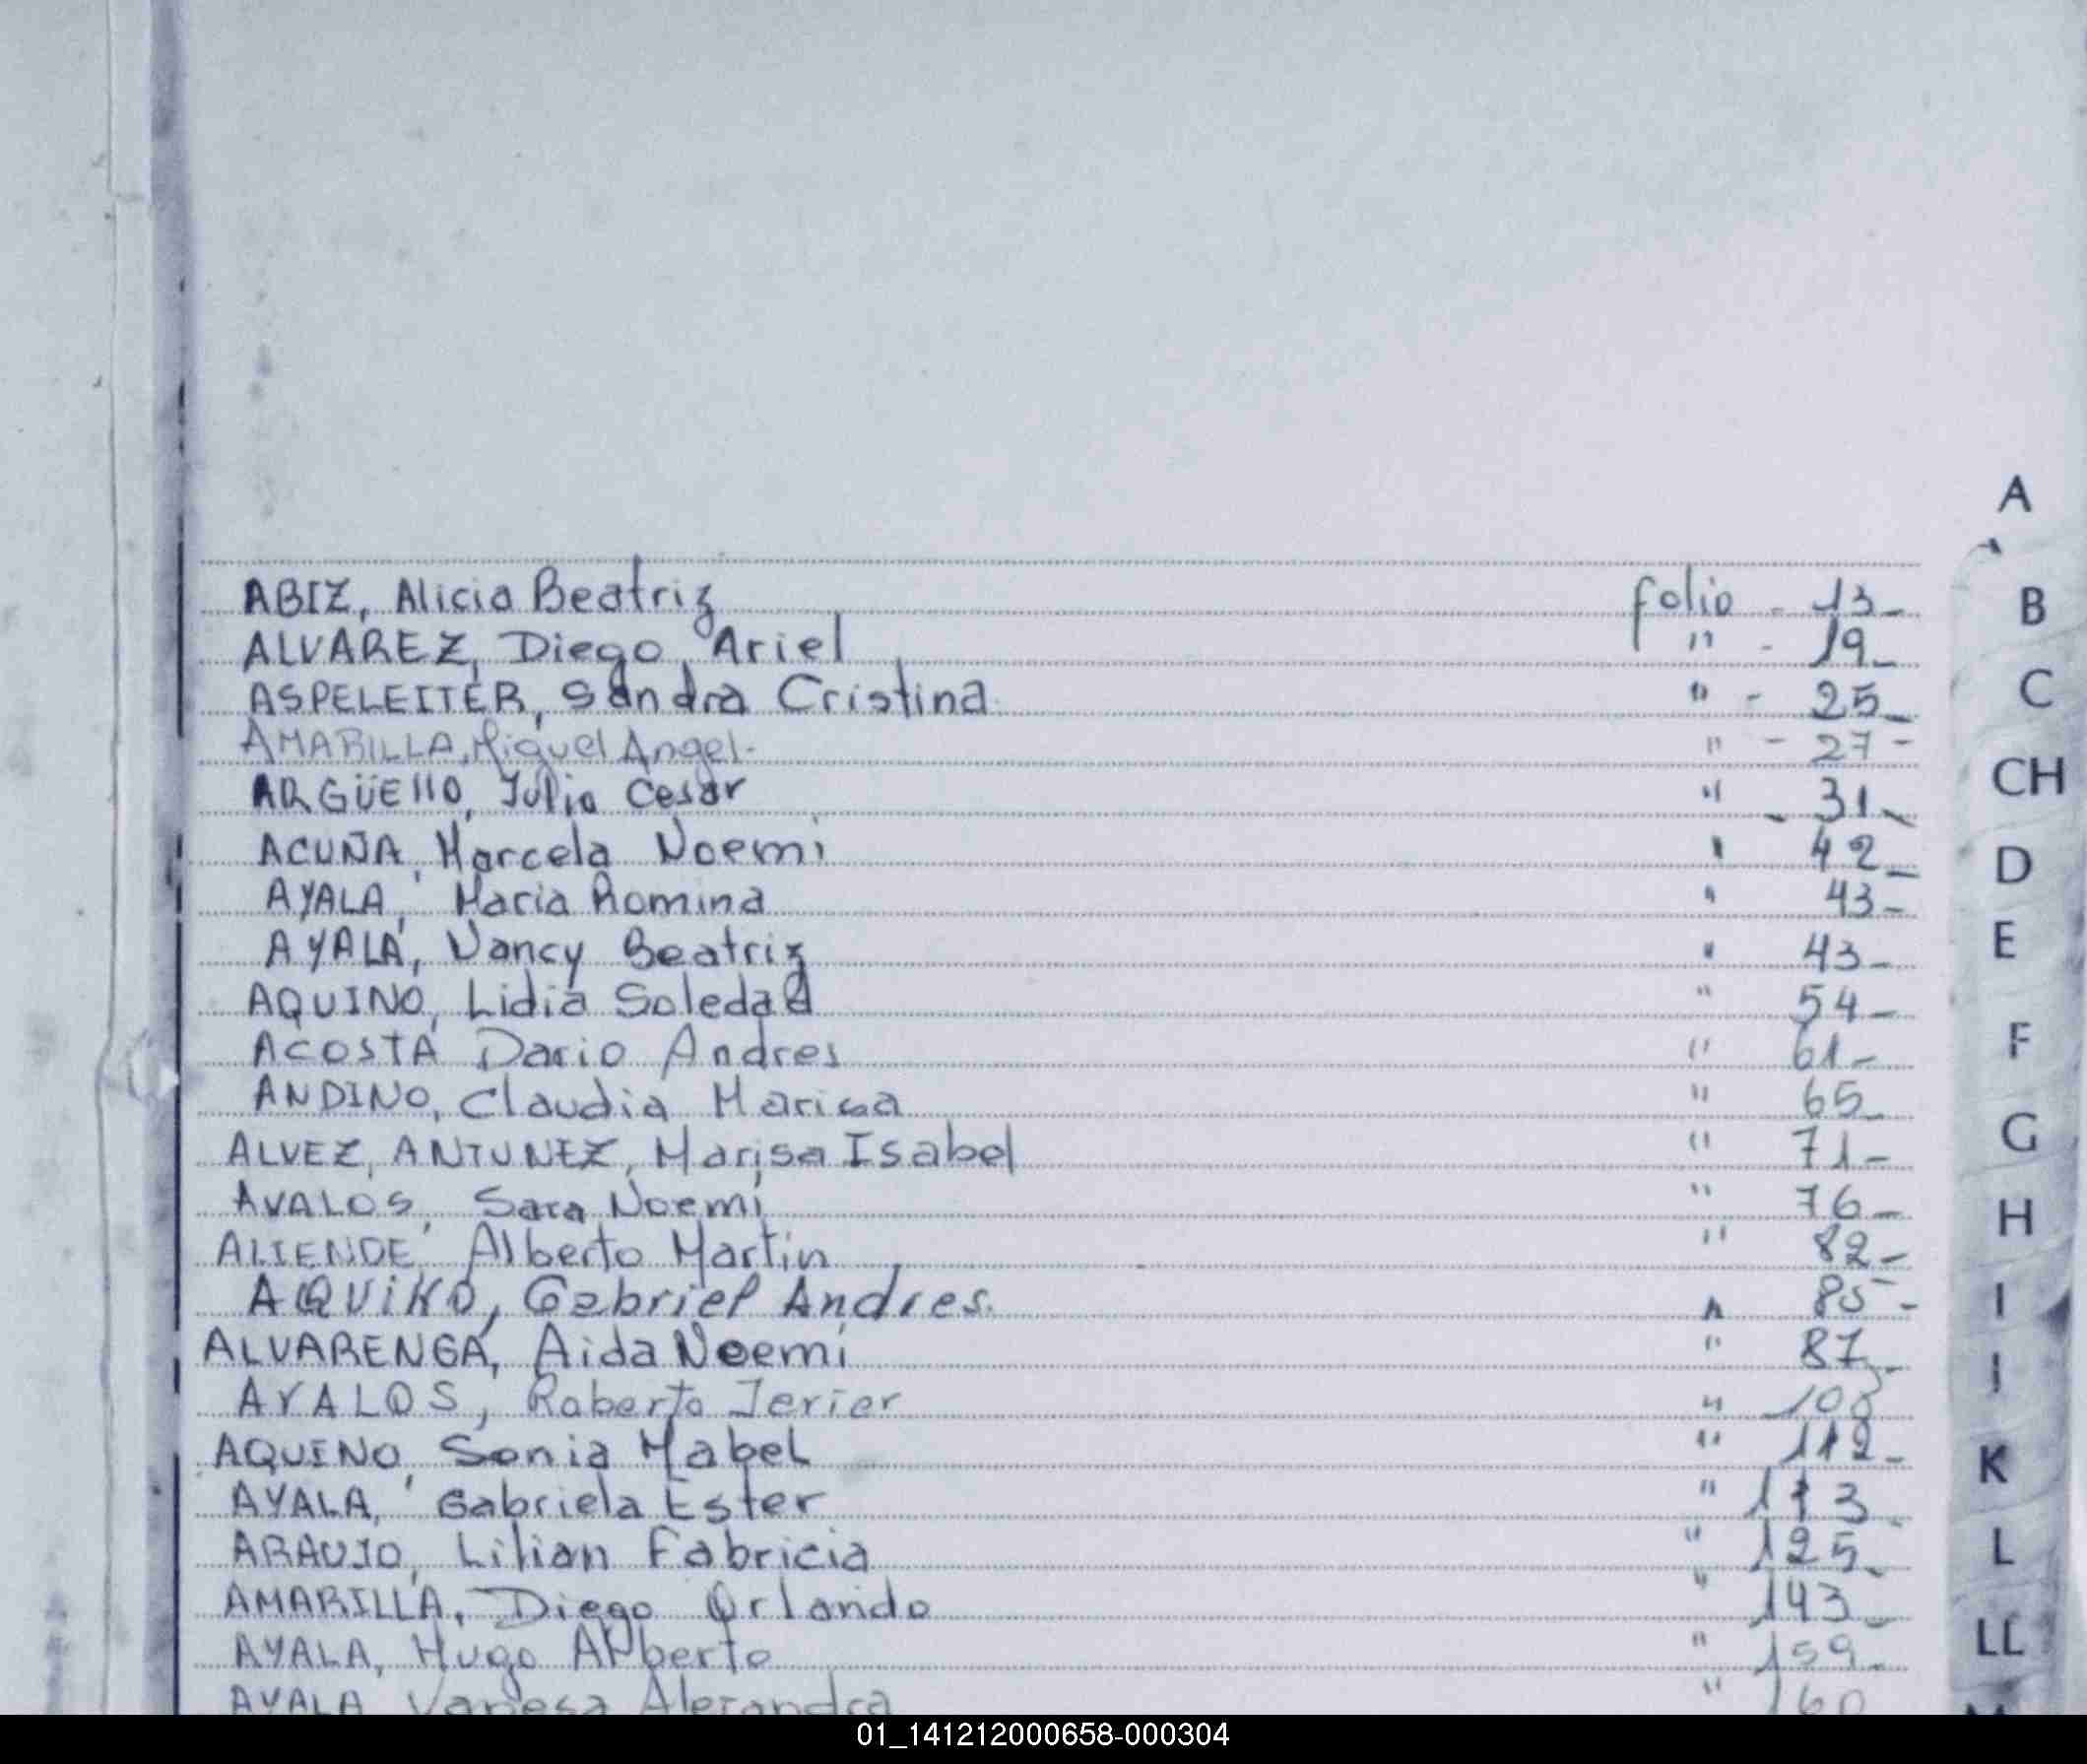 A
ABIZ, Alicia Beatriz folio - 13-
B
ALVAREZ, Diego Ariel " - 19-
ASPELEITER, Sandra Cristina " - 25-
C
AMARILLA, Miguel Angel- " - 27-
CH
ARGÜEllO, Julio Cesar " - 31-
ACUÑA, Marcela Noemi " 42-
D
AYALA, Maria Romina " 43-
E
AYALA, Nancy Beatriz " 43-
AQUINO, Lidia Soledad " 54-
F
ACOSTA Dario Andres " 61-
ANDINO, Claudia Marisa " 65-
G
ALVEZ, ANTUNEZ, Marisa Isabel " 71-
AVALOS, Sara Noemi " 76-
H
ALIENDE, Alberto Martin " 82-
AQUiNO, Gabriel Andres. " 85-
I
ALVARENGA, Aida Noemi " 87-
J
AVALOS, Roberto Javier "
AQUINO, Sonia Mabel " 112-
K
AYALA, Gabriela Ester " 113-
ARAUJO, Lilian Fabricia " 125-
L
AMARILLA, Diego Orlando " 143-
AYALA, Hugo Alberto " 159-
LL
AYALA Vanesa Alexandra " 160
01_141212000658-000304